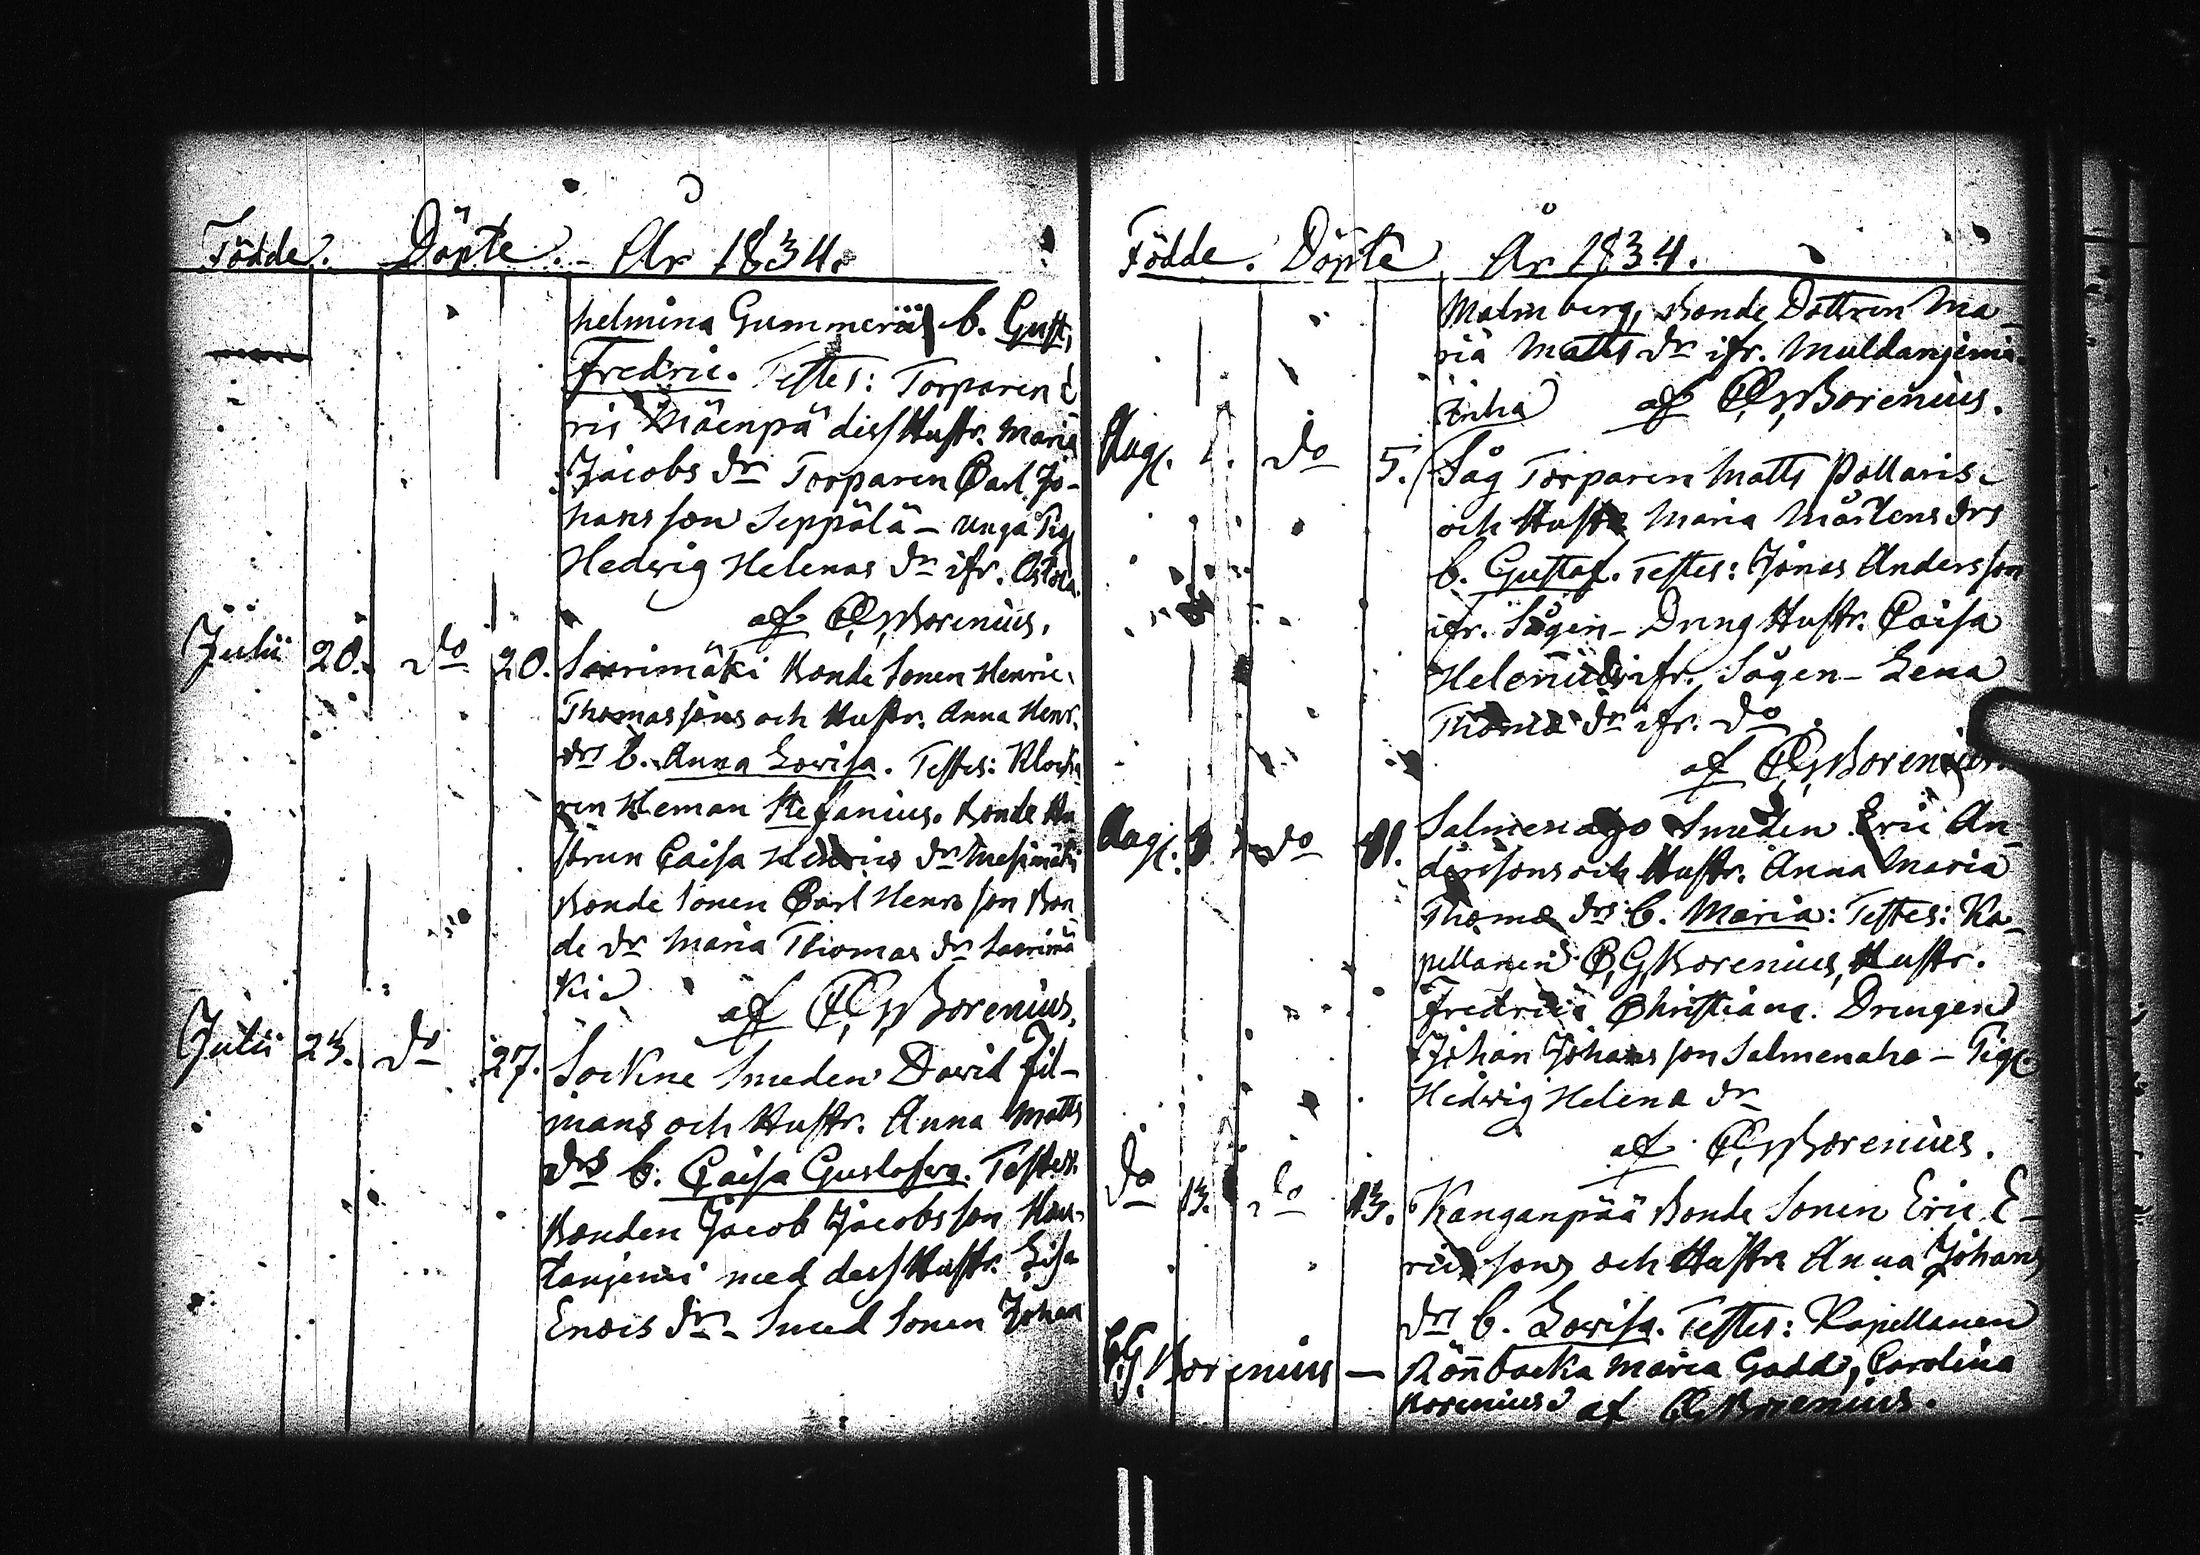 Födde. Döpte. År 1834.
helmina Gummerii b. Gust,
Fredric. Testes: Torparen E
ris Mäenpä dess Hustr. Maria
Jacobs dr Torparen Carl Jo-
hansson Seppälä - unga Pig
Hedvig Helenas dr ifr.
af C,G,Borenius.
Julii 20. do 20. Saarimäki Bonde Sonen Henric
Thomassons och Hustr. Anna Henr.
drs b. Anna Lovisa. Testes: Klocka
ren Heman Stefanius. Bonde Hu
strun Caisa Henrics dr Mesimäki
Bonde Sonen Carl Henrsson Bon
de dr Maria Thomas dr Saarimä
ki af C,G,Borenius.
Julii 23. do 27. Sockne Smeden David Fil-
mans och Hustr. Anna Matts
drs b. Caisa Gustafva. Testes:
Bonden Jacob Jacobsson
med dess Hustr. Lisa
dr - Smed Sonen Johan
Födde. Döpte År 1834.
Malmberg, Bonde Dottren Ma-
ria Matts dr ifr.
af C,G,Borenius.
Aug. do 5. Såg Torparen Matts Pollaris
och Hustr Maria Mårtens drs
b. Gustaf. Testes: Jonas Andersson
ifr. Sågen - Dreng Hustr. Caisa
ifr. Sågen - Lena
Thomæ dr ifr. do
af C,G,Borenius.
Aug. do 11. Smeden Eric An-
derssons och Hustr. Anna Maria
Thomæ drs b. Maria: Testes: Ka-
pellanen C,G,Borenius, Hustr.
Fredrica Christiana. Drengen
Johan Johansson Salmenaho - Pig.
Hedvig Helenæ dr
af C,G,Borenius.
do 13. do 13. Kanganpää Bonde Sonen Eric E-
rics sons och Hustrs Anna Johans
drs b. Lovisa. Testes: Kapellanen
C.G. Borenius - Rönnbacka Maria Gadd, Carolina
Borenius af CGBorenius.